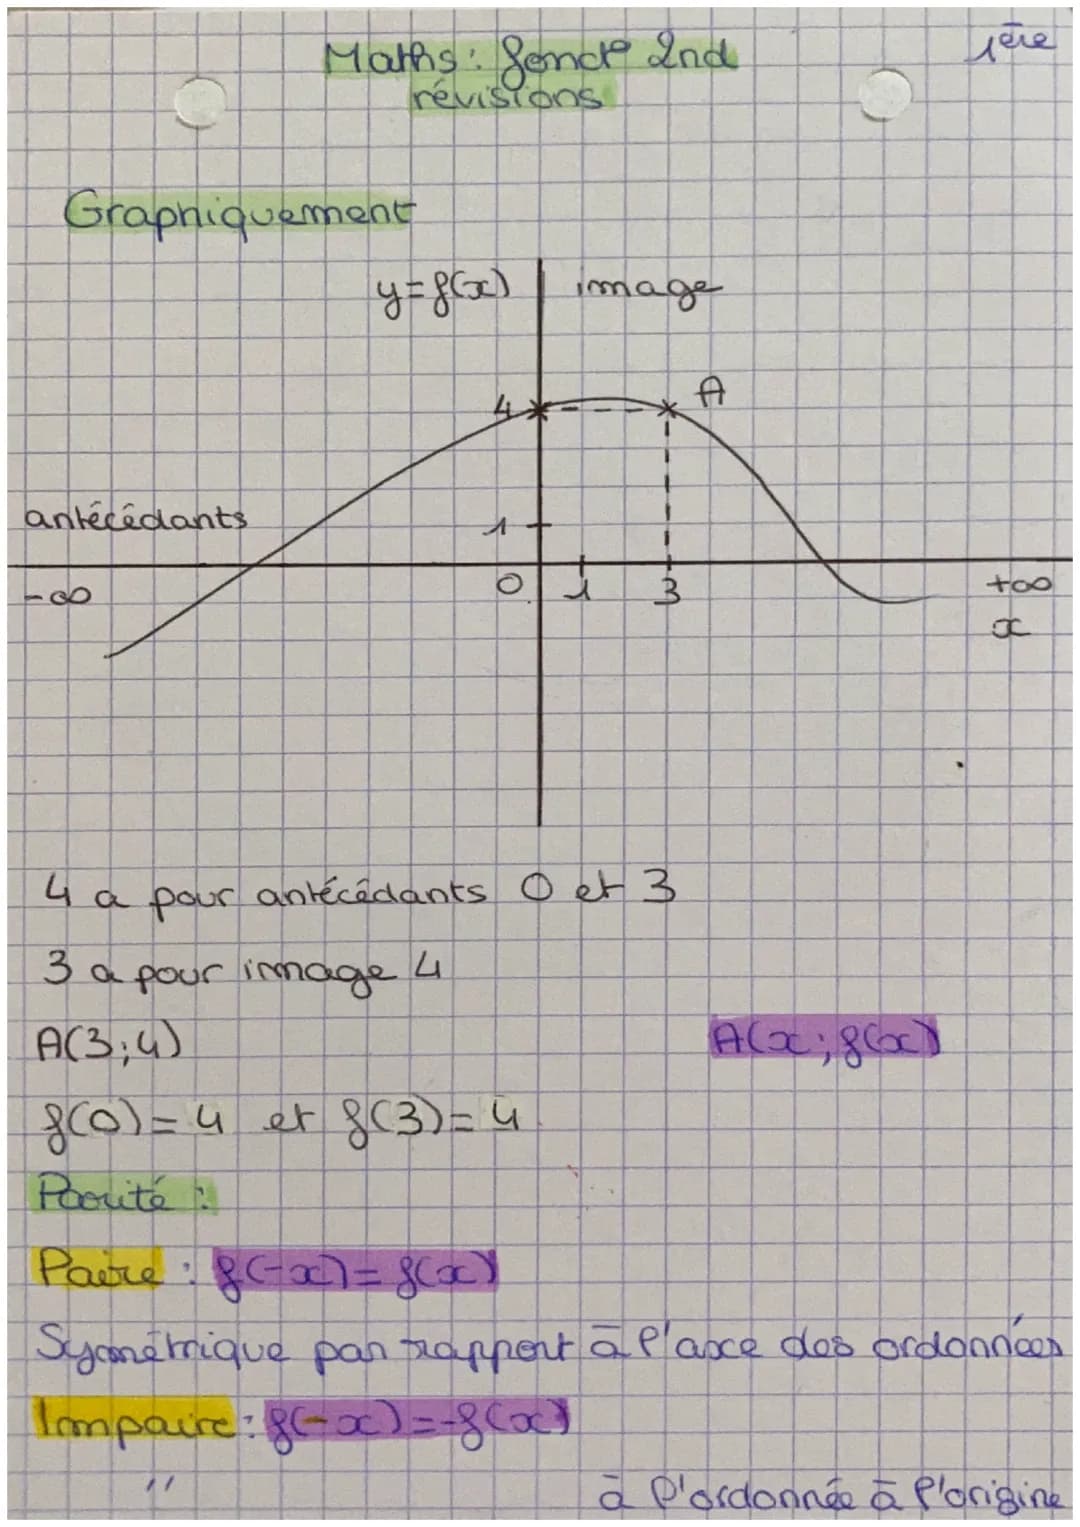 Maths: fonct° 2nd
1ère
révisions
Graphiquement
y=f(x) image
4 A
antécédants
1
-∞ 0 1 3 +∞
x
4 a pour antécédants 0 et 3
3 a pour image 4
A(3;4) A(x;f(x))
f(0)=4 et f(3)=4
Parité :
Paire : f(-x)=f(x)
Symétrique par rapport à l'axe des ordonnées
Impaire : f(-x)=-f(x)
" à l'ordonnée à l'origine